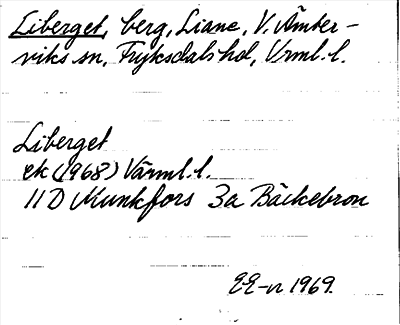 Liberget, berg, Liane, V. Ämter-
viks sn, Fryksdals hd, Vrml. l.
Liberget
ek (1968) Värml. l.
11 D Munkfors 3a Bäckebron
1969.